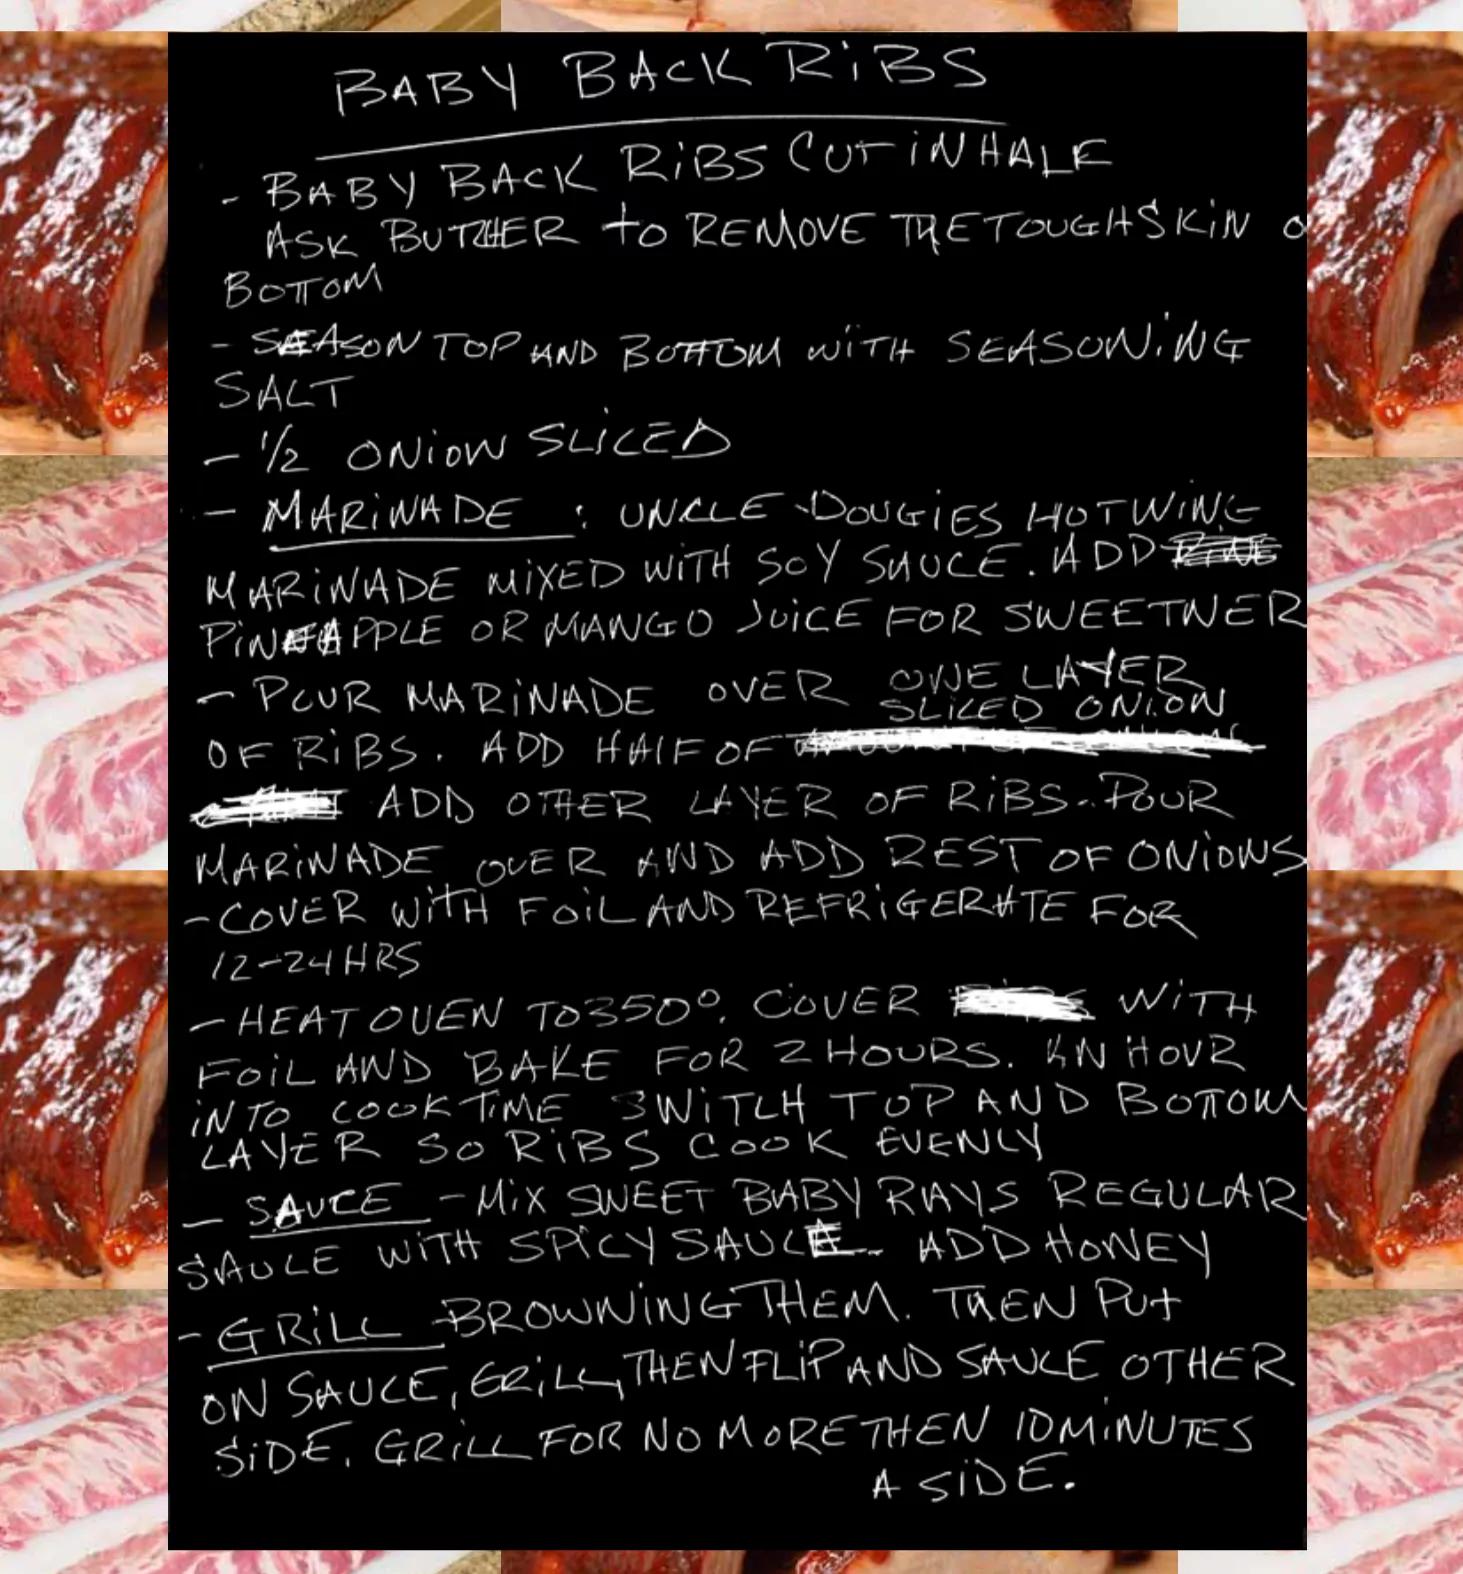 BABY BACK RiBS
- BABY BACK RiBS CUT iN HALF
ASK BUTCHER to REMOVE THE TOUGH SKiN O
BOTTOM
- SEASON TOP AND BOTTOM WiTH SEASONiNG
SALT
- 1/2 ONiON SLiCED
- MARiNADE : UNCLE DOUGiES HOT WiNG
MARiNADE MiXED WiTH SOY SAUCE. ADD
PiNEAPPLE OR MANGO JUiCE FOR SWEETNER
- POUR MARiNADE OVER ONE LAYER
OF RiBS. ADD HALF OF SLiCED ONiON
ADD OTHER LAYER OF RiBS. POUR
MARiNADE OVER AND ADD REST OF ONiONS
- COVER WiTH FOiL AND REFRiGERATE FOR
12-24 HRS
- HEAT OVEN TO 350°. COVER WiTH
FOiL AND BAKE FOR 2 HOURS. AN HOUR
iNTO COOK TiME SWiTCH TOP AND BOTTOM
LAYER SO RiBS COOK EVENLY
- SAUCE - MiX SWEET BABY RAYS REGULAR
SAUCE WiTH SPiCY SAUCE. ADD HONEY
- GRiLL - BROWNiNG THEM. THEN PUt
ON SAUCE, GRiLL, THEN FLiP AND SAUCE OTHER
SiDE. GRiLL FOR NO MORE THEN 10 MiNUTES
A SiDE.